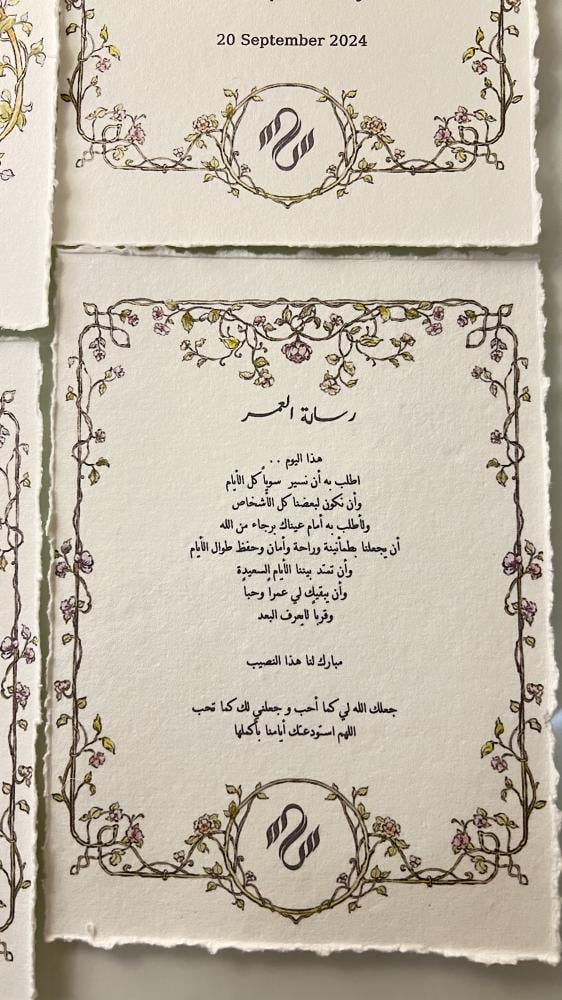 20 September 2024
رسالة العمر
هذا اليوم . .
اطلب به أن نسير سوياً كل الأيام
وأن نكون لبعضنا كل الأشخاص
ولأطلب به أمام عيناك برجاء من الله
أن يجعلنا بطمأنينة وراحة وأمان وحفظ طوال الأيام
وأن تمتد بيننا الأيام السعيدة
وأن يبقيك لي عمرا وحبا
وقربا لايعرف البعد
مبارك لنا هذا النصيب
جعلك الله لي كما أحب و جعلني لك كما تحب
اللهم استودعتك أيامنا بأكملها